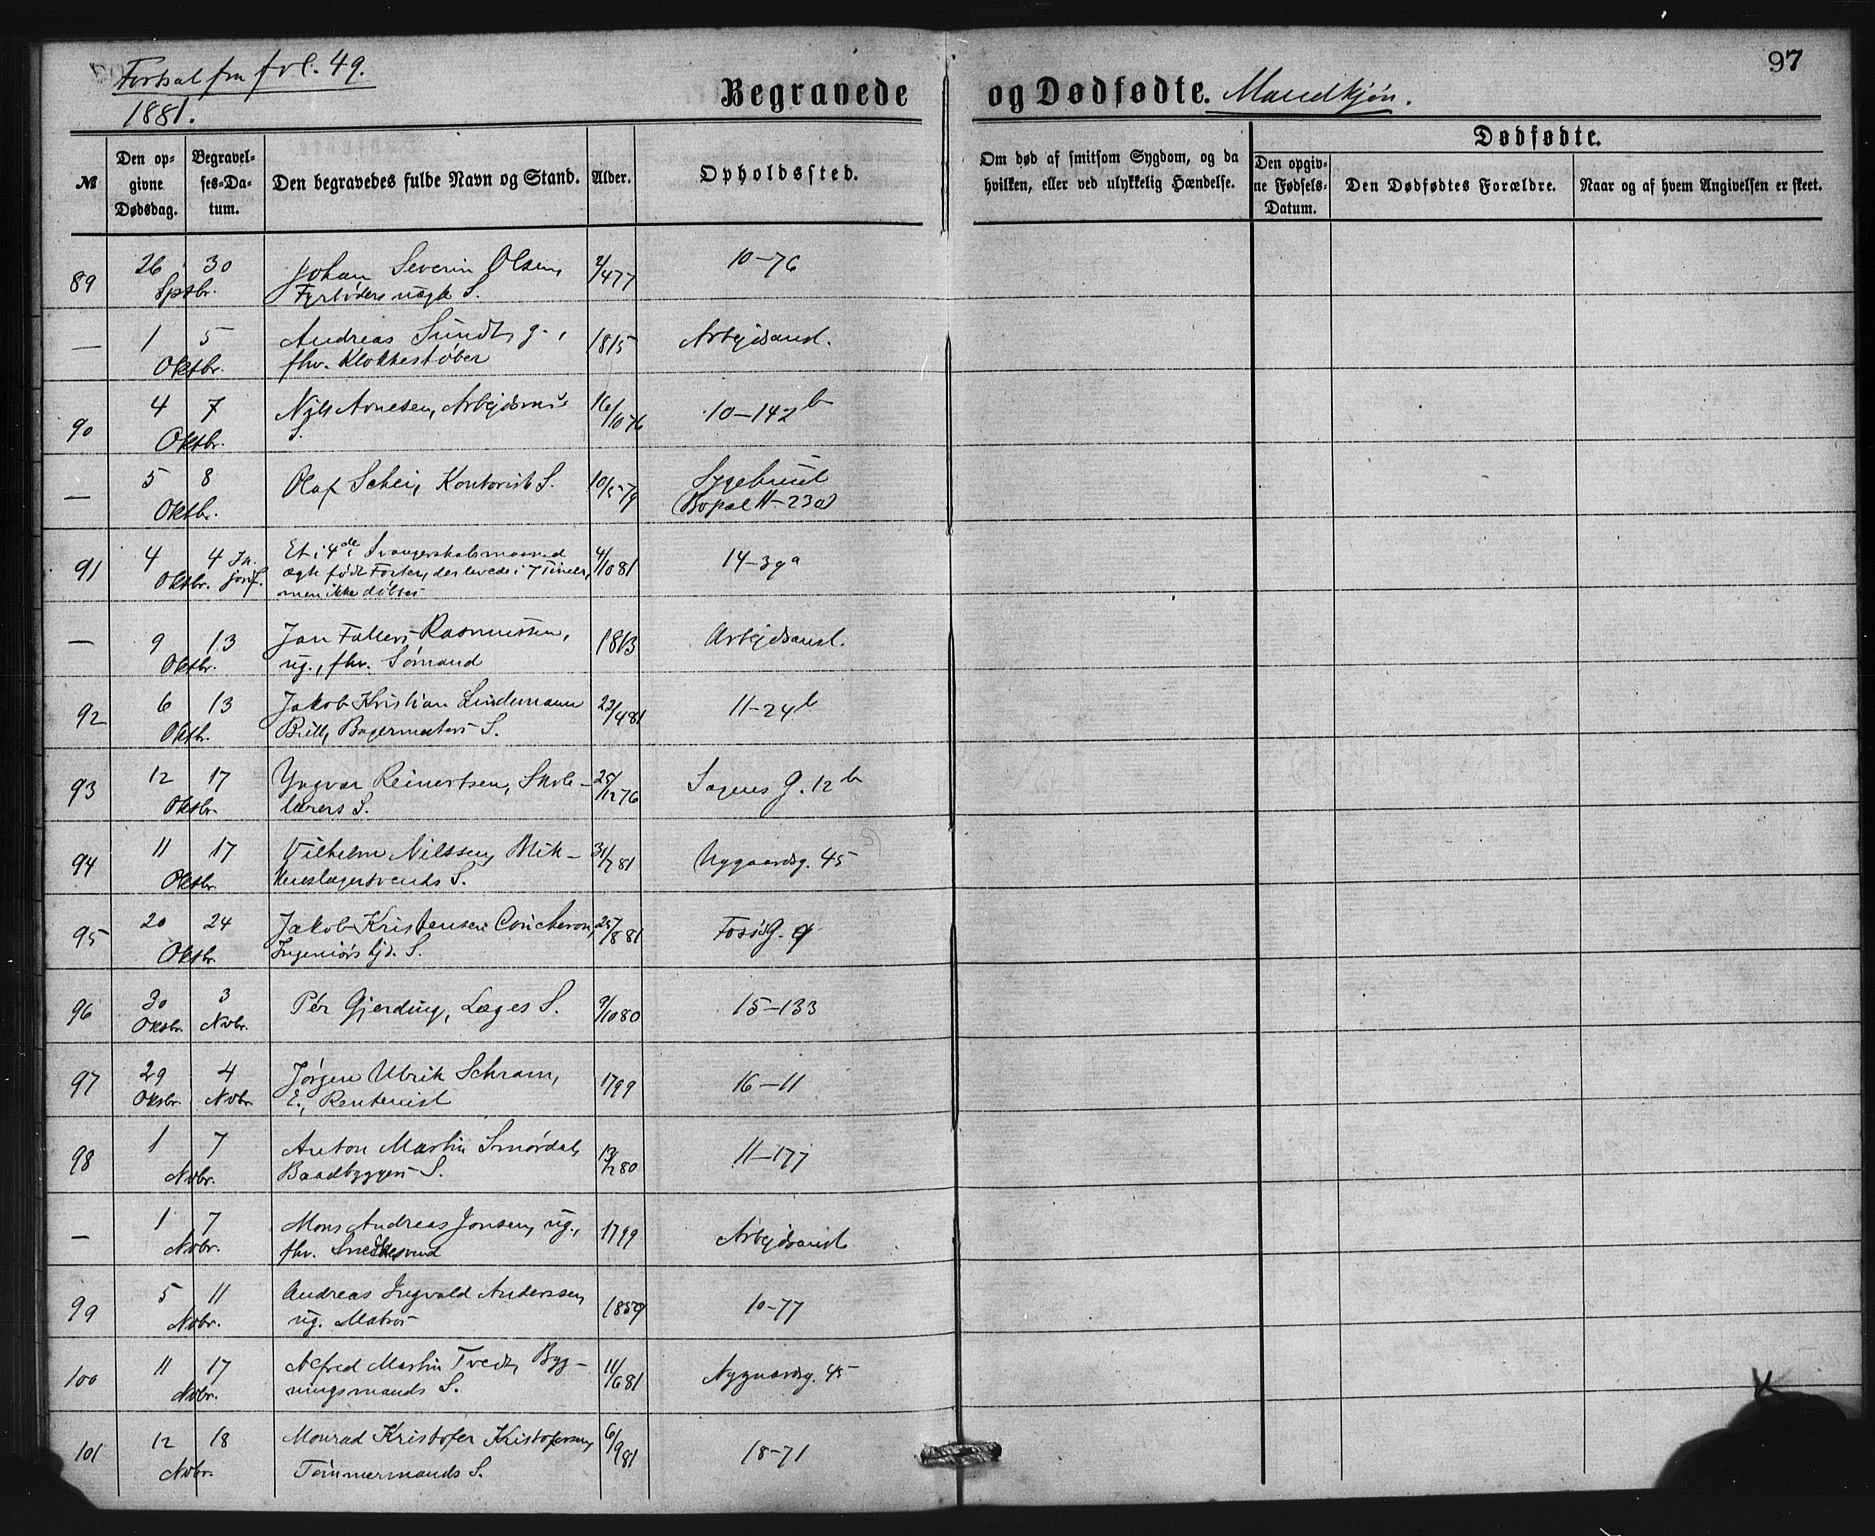 Fortsat fra fol. 49.
1881.
97
Begravede og Dødfødte. Mandkjøn.
Dødfødte.
№
Den opgivne Dødsdag.
Begravelses-Datum.
Den begravedes fulde Navn og Stand.
Alder.
Opholdssted.
Om død af smitsom Sygdom, og da hvilken, eller ved ulykkelig Hændelse.
Den opgivne Fødsels-Datum.
Den Dødfødtes Forældre.
Naar og af hvem Angivelsen er skeet.
89 26 30 Johan Severin Olsen, 2/4 77 10-76
Sptbr. Fyrbøders ægte S.
— 1 5 Andreas Sundt, g., 1815 Arbejdsanst.
Oktbr. fhv. Klokkestøber
90 4 7 Nils Arnesen, Arbejdsm.s 16/10 76 10-142b
Oktbr. S.
— 5 8 Olaf Schei, Kontorist S. 10/5 79 Sygehuset
Oktbr. (Bopæl 11-23a)
91 4 4 Et i 4de Svangerskabsmaaned 4/10 81 14-39a
Oktbr. ægte født Foster, der levede i 7 Timer,
men ikke døbtes
— 9 13 Jan Fasmer Rasmussen, 1813 Arbejdsanst.
Oktbr. ug., fhv. Sømand
92 6 13 Jakob Kristian Lindemann 22/4 81 11-24b
Oktbr. Bagermesters S.
93 12 17 Yngvar Reinertsen, Skole- 25/12 76 Sagens G. 12b
Oktbr. lærers S.
94 11 17 Vilhelm Nilssen, Blik- 31/7 81 Nygaardsg. 45
Oktbr. kenslagersvends S.
95 20 24 Jakob Kristensen Concheron, 25/8 81 Foss G. 9
Oktbr. Ingeniørs S.
96 30 3 Per Gjerding, Læges S. 9/10 80 15-133
Oktbr. Nvbr.
97 29 4 Jørgen Ulrik Schram, 1799 16-11
Oktbr. Nvbr. E., Rentenist
98 1 7 Anton Martin Smørdal, 13/12 80 11-177
Nvbr. Baadbyggers S.
— 1 7 Mons Andreas Jonsen, ug., 1799 Arbejdsanst.
Nvbr. fhv. Snedkersvend
99 5 11 Andreas Ingvald Anderssen, 1859 10-77
Nvbr. ug. Matros
100 11 17 Alfred Martin Tvedt, Byg- 11/6 81 Nygaardsg. 45
Nvbr. ningsmands S.
101 12 18 Monrad Kristofer Kristofersen, 6/9 81 18-71
Nvbr. Tømmermands S.